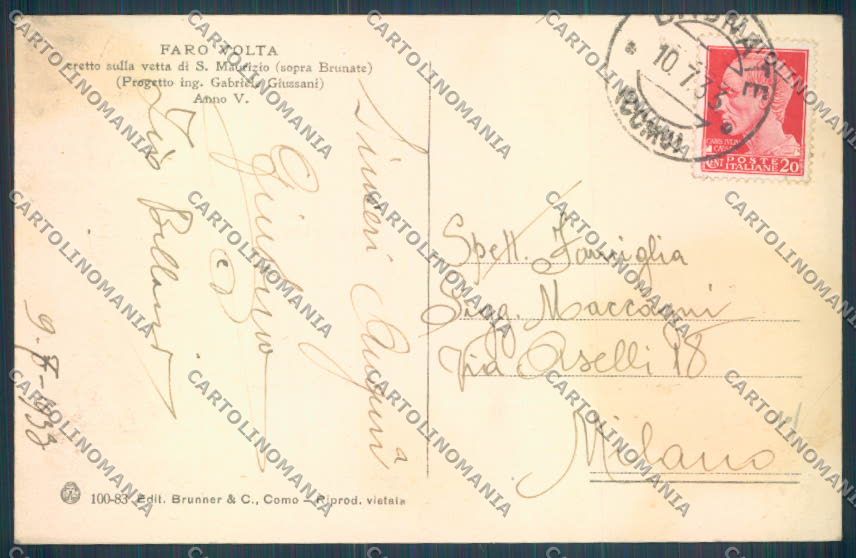 FARO VOLTA
eretto sulla vetta di S. Maurizio (sopra Brunate)
(Progetto ing. Gabriele Giussani)
Anno V.
BRUNATE
10.7.33
(COMO)
CAIVS IVLIVS
CAESAR
CENT POSTE 20
ITALIANE
Sinceri Auguri
9-7-1933
Spett. Famiglia
Sigg. Maccarini
Via Aselli 18
Milano
100-83 Edit. Brunner & C., Como - Riprod. vietata
CARTOLINOMANIA